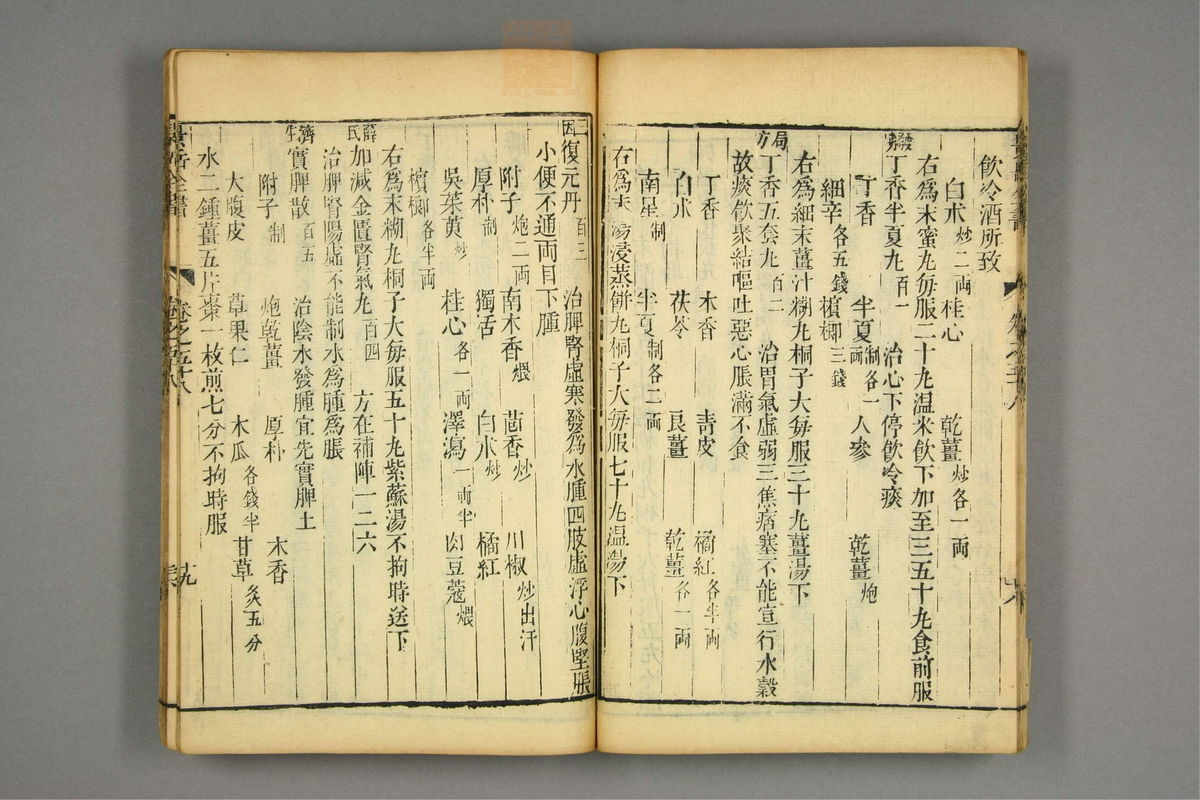 飲冷酒所致
白朮 炒二兩 桂心 乾薑 炒各一兩
右為末蜜丸每服二十丸温米飲下加至三五十丸食前服
丁香半夏丸 百一 治心下停飲冷痰
丁香 半夏 制各一兩 人參 乾薑 炮
細辛 各五錢 檳榔 三錢
右為細末薑汁糊丸桐子大每服三十丸薑湯下
局方 丁香五套丸 百二 治胃氣虛弱三焦痞塞不能宣行水穀
故痰飲聚結嘔吐惡心脹滿不食
丁香 木香 青皮 橘紅 各半兩
白朮 茯苓 良薑 乾薑 各一兩
南星 制 半夏 制各二兩
右為末湯浸蒸餅丸桐子大每服七十丸温湯下
三因 復元丹 百三 治脾腎虛寒發為水腫四肢虛浮心腹堅脹
小便不通両目下腫
附子 炮二兩 南木香 煨 茴香 炒 川椒 炒出汗
厚朴 制 獨活 白朮 炒 橘紅
吳茱萸 炒 桂心 各一兩 澤瀉 一兩半 肉豆蔻 煨
檳榔 各半兩
右為末糊丸桐子大每服五十丸紫蘇湯不拘時送下
薛氏 加減金匱腎氣丸 百四 方在補陣一二六
治脾腎陽虛不能制水為腫為脹
濟生 實脾散 百五 治陰水發腫宜先實脾土
附子 制 炮乾薑 厚朴 木香
大腹皮 草果仁 木瓜 各錢半 甘草 炙五分
水二鍾薑五片棗一枚煎七分不拘時服